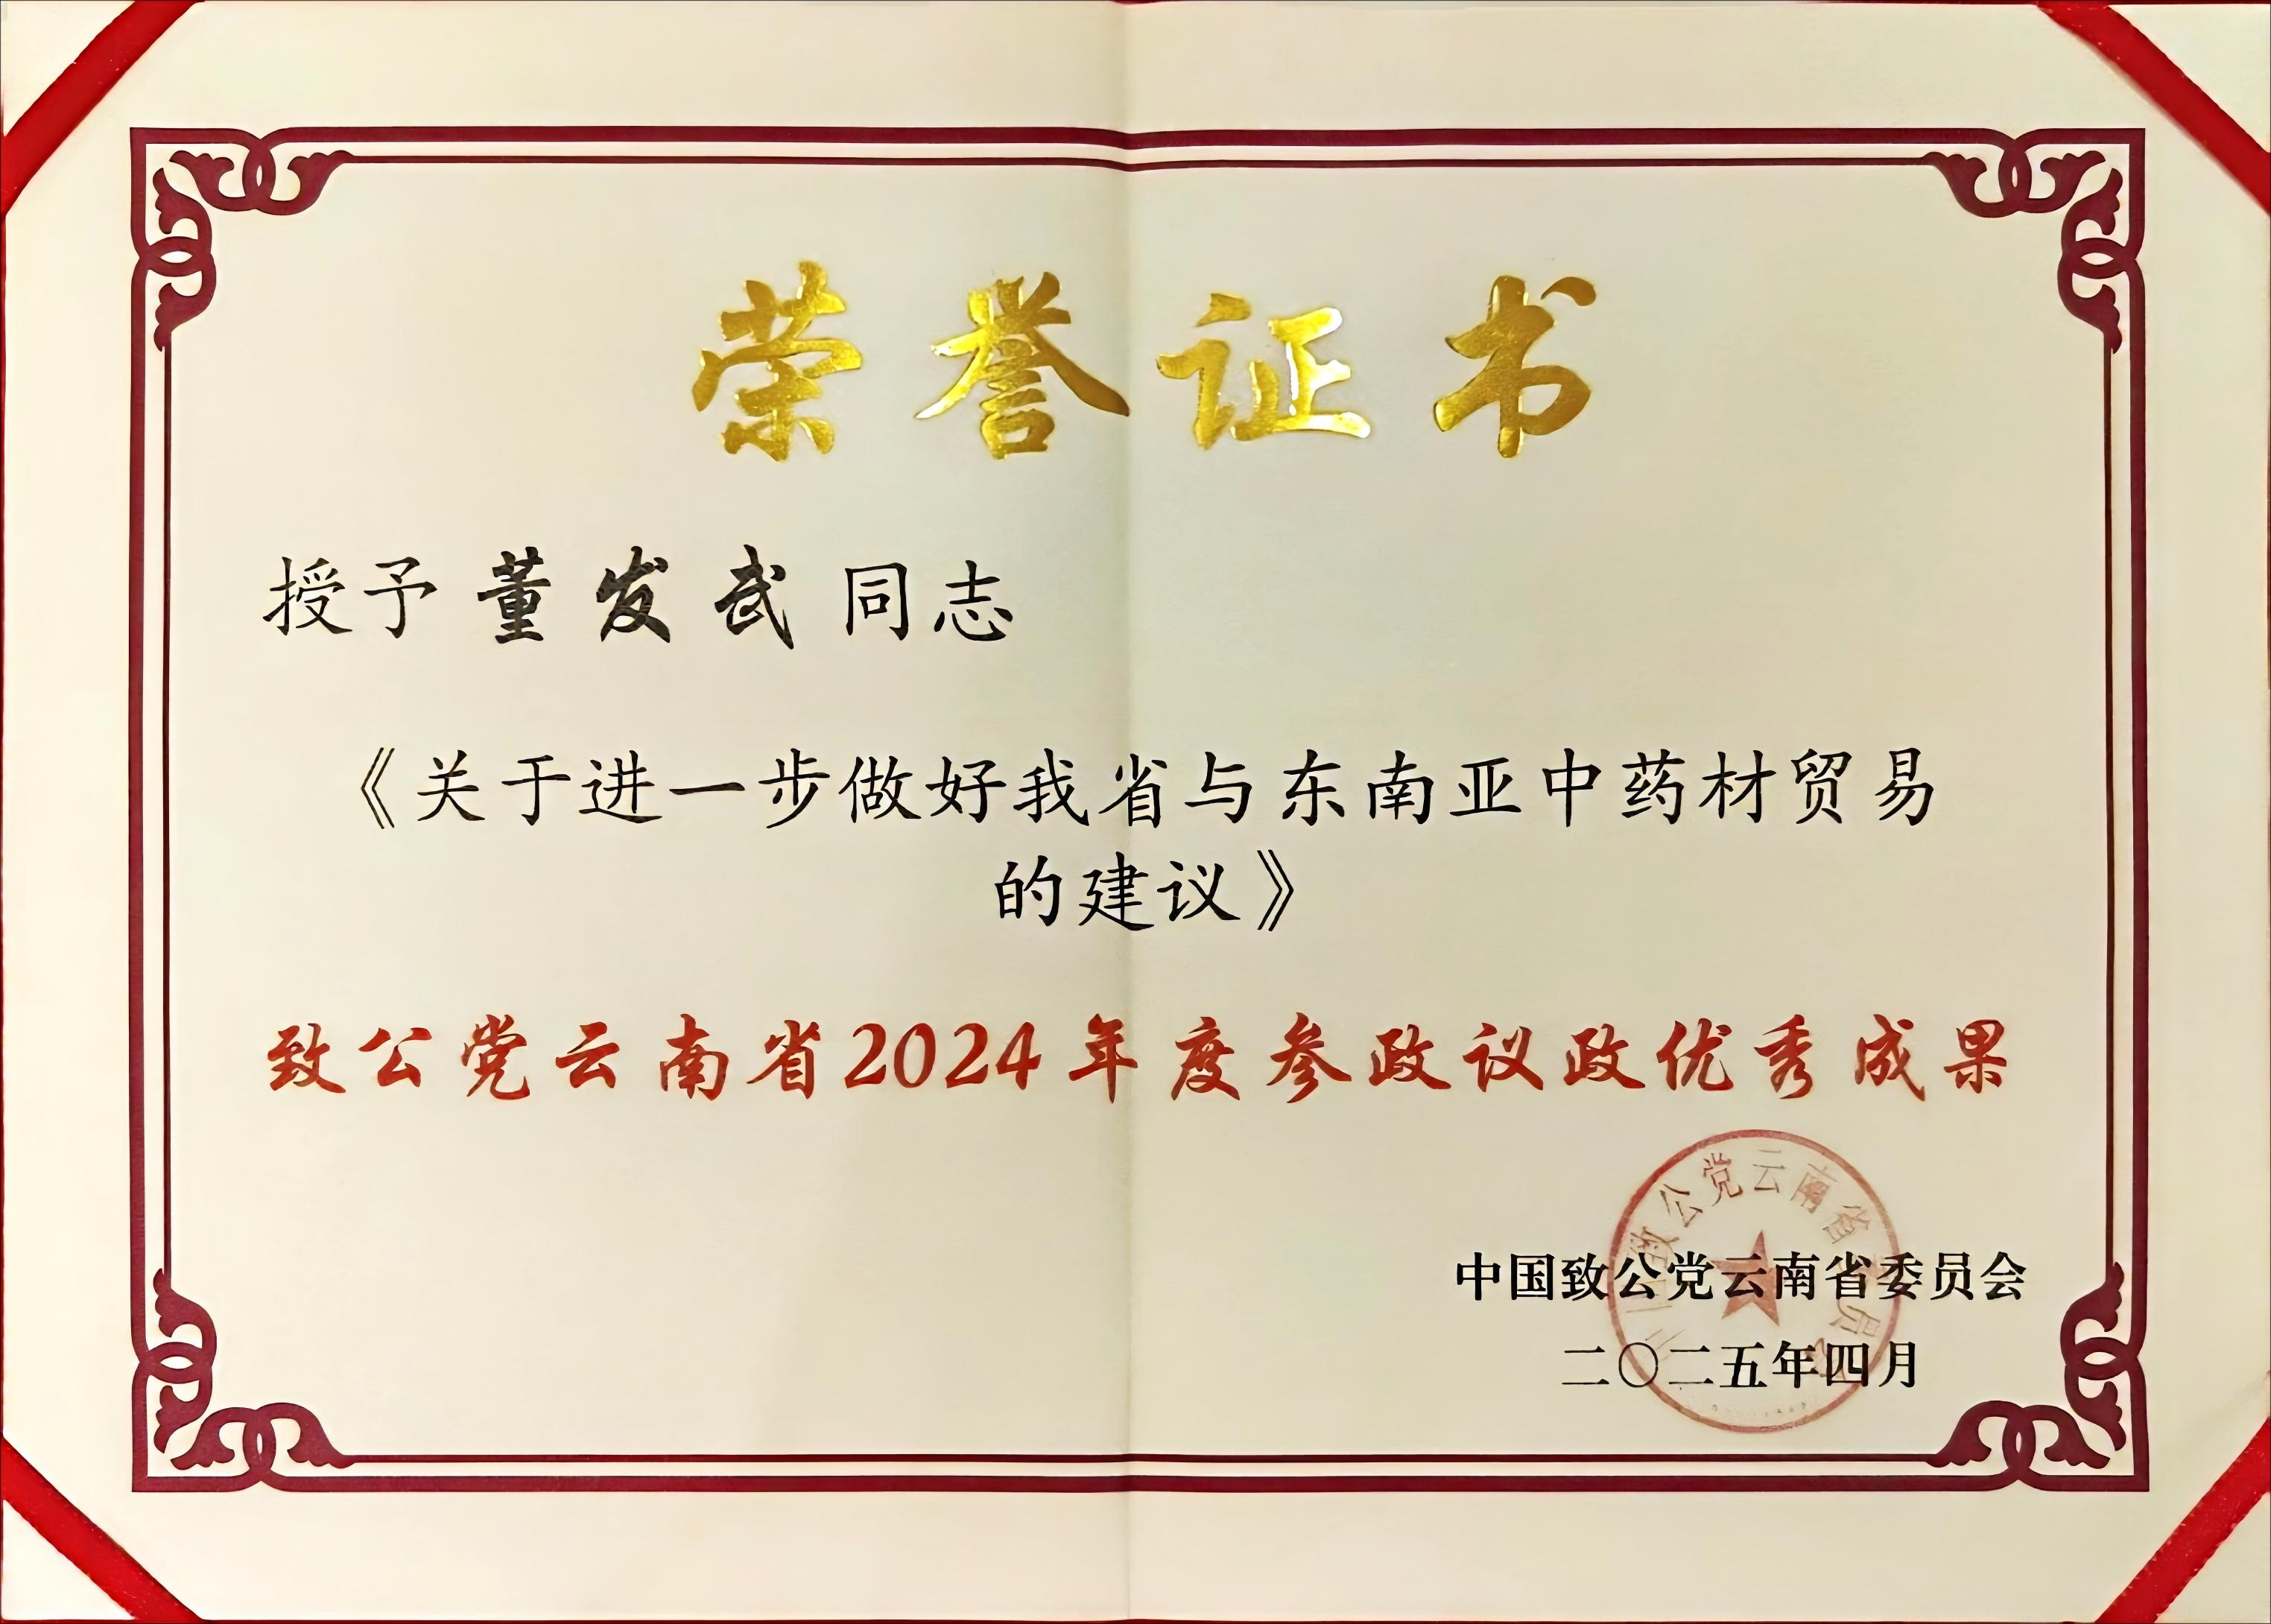 荣誉证书
授予 董发武 同志
《关于进一步做好我省与东南亚中药材贸易
的建议》
致公党云南省2024年度参政议政优秀成果
致公党云南省
中国致公党云南省委员会
二〇二五年四月